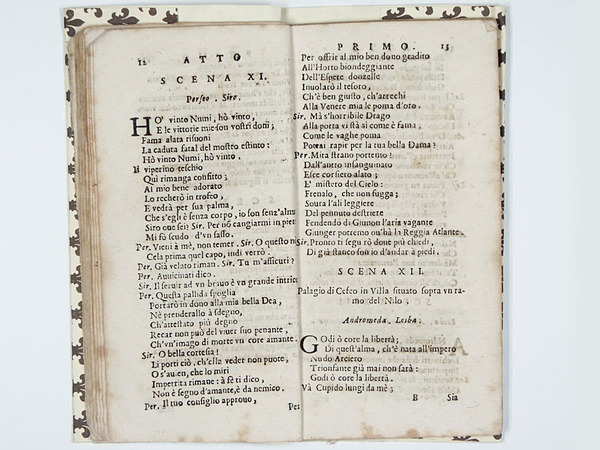 12 ATTO
SCENA XI.
Perseo. Siro.
HO' vinto Numi, hò vinto,
E le vittorie mie son vostri doni;
Fama alata risuoni
La caduta fatal del mostro estinto:
Hò vinto Numi, hò vinto.
Il viperino teschio
Qui rimanga confitto;
Al mio bene adorato
Lo recherò in trofeo,
E vedrà per sua palma,
Che s'egli è senza corpo, io son senz'alma
Siro oue sei? Sir. Per nō cangiarmi in piet
Mi fò scudo d'vn sasso.
Per. Vieni à mè, non temer. Sir. O questo nò
Cela prima quel capo, indi verrò.
Per. Già velato riman. Sir. Tu m'assicuri?
Per. Auuicinati dico.
Sir. Il seruir ad vn brauo è vn grande intrico
Per. Questa pallida spoglia
Portarò in dono alla mia bella Dea,
Nè prenderallo à sdegno,
Ch'attestato più degno
Recar non può del viuer suo penante,
Ch'vn'imago di morte vn core amante.
Sir. O bella cortesia!
Li porti ciò, ch'ella veder non puote,
O s'auuen, che lo miri
Impetrita rimane: à fè ti dico,
Non è segno d'amante, è da nemico.
Per. Il tuo consiglio approuo,
Per
PRIMO. 13
Per offrir al mio ben dono gradito
All'Horto biondeggiante
Dell'Espere donzelle
Inuolarò il tesoro,
Ch'è ben giusto, ch'arrechi
Alla Venere mia le poma d'oro.
Sir. Mà s'horribile Drago
Alla porta vi stà sì come è fama,
Come le vaghe poma
Potrai rapir per la tua bella Dama?
Per. Mira strano portento!
Dall'antro insanguinato
Esce corsiero alato;
E' mistero del Cielo:
Frenalo, che non fugga;
Soura l'ali leggiere
Del pennuto destriere
Fendendo di Giunon l'aria vagante
Giunger potremo nu'hà la Reggia Atlante.
Sir. Pronto ti segu rò doue più chiedi,
Di già stanco son io d'andar à piedi.
SCENA XII.
Palagio di Cefeo in Villa situato sopra vn ra-
mo del Nilo;
Andromeda. Lesba.
GOdi ò core la libertà;
Di quest'alma, ch'è nata all'impero
Nudo Arciero
Trionfante già mai non sarà:
Godi ò core la libertà.
Và Cupido lungi da mè;
B Sia